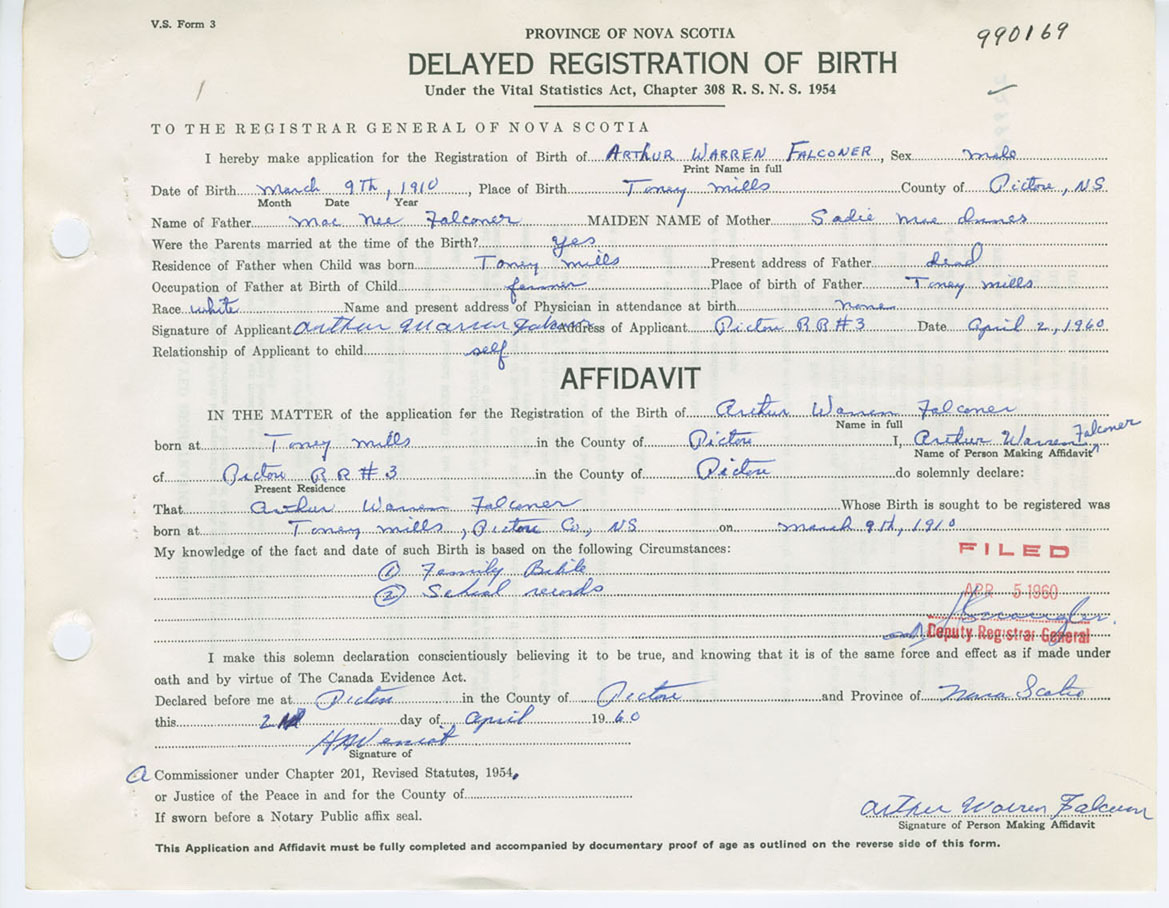 V.S. Form 3
990169
PROVINCE OF NOVA SCOTIA
DELAYED REGISTRATION OF BIRTH
Under the Vital Statistics Act, Chapter 308 R. S. N. S. 1954
TO THE REGISTRAR GENERAL OF NOVA SCOTIA
I hereby make application for the Registration of Birth of ARTHUR WARREN FALCONER, Sex male
Print Name in full
Date of Birth March 9th, 1910, Place of Birth Toney mills County of Pictou, NS.
Month Date Year
Name of Father Mac Nee Falconer MAIDEN NAME of Mother Sadie Mae Innes
Were the Parents married at the time of the Birth? yes
Residence of Father when Child was born Toney mills Present address of Father dead
Occupation of Father at Birth of Child farmer Place of birth of Father Toney mills
Race white Name and present address of Physician in attendance at birth none
Signature of Applicant Arthur Warren Falconer Address of Applicant Pictou RR#3 Date April 2, 1960
Relationship of Applicant to child self
AFFIDAVIT
IN THE MATTER of the application fer the Registration of the Birth of Arthur Warren Falconer
Name in full
born at Toney mills in the County of Pictou I, Arthur Warren Falconer
Name of Person Making Affidavit
of Pictou RR#3 in the County of Pictou do solemnly declare:
Present Residence
That Arthur Warren Falconer Whose Birth is sought to be registered was
born at Toney mills, Pictou Co., NS on March 9th, 1910
My knowledge of the fact and date of such Birth is based on the following Circumstances:
FILED
① Family Bible
② School records
APR 5 1960
Deputy Registrar General
I make this solemn declaration conscientiously believing it to be true, and knowing that it is of the same force and effect as if made under
oath and by virtue of The Canada Evidence Act.
Declared before me at Pictou in the County of Pictou and Province of Nova Scotia
this 2nd day of April 1960
Signature of
A Commissioner under Chapter 201, Revised Statutes, 1954,
or Justice of the Peace in and for the County of
If sworn before a Notary Public affix seal.
Arthur Warren Falconer
Signature of Person Making Affidavit
This Application and Affidavit must be fully completed and accompanied by documentary proof of age as outlined on the reverse side of this form.